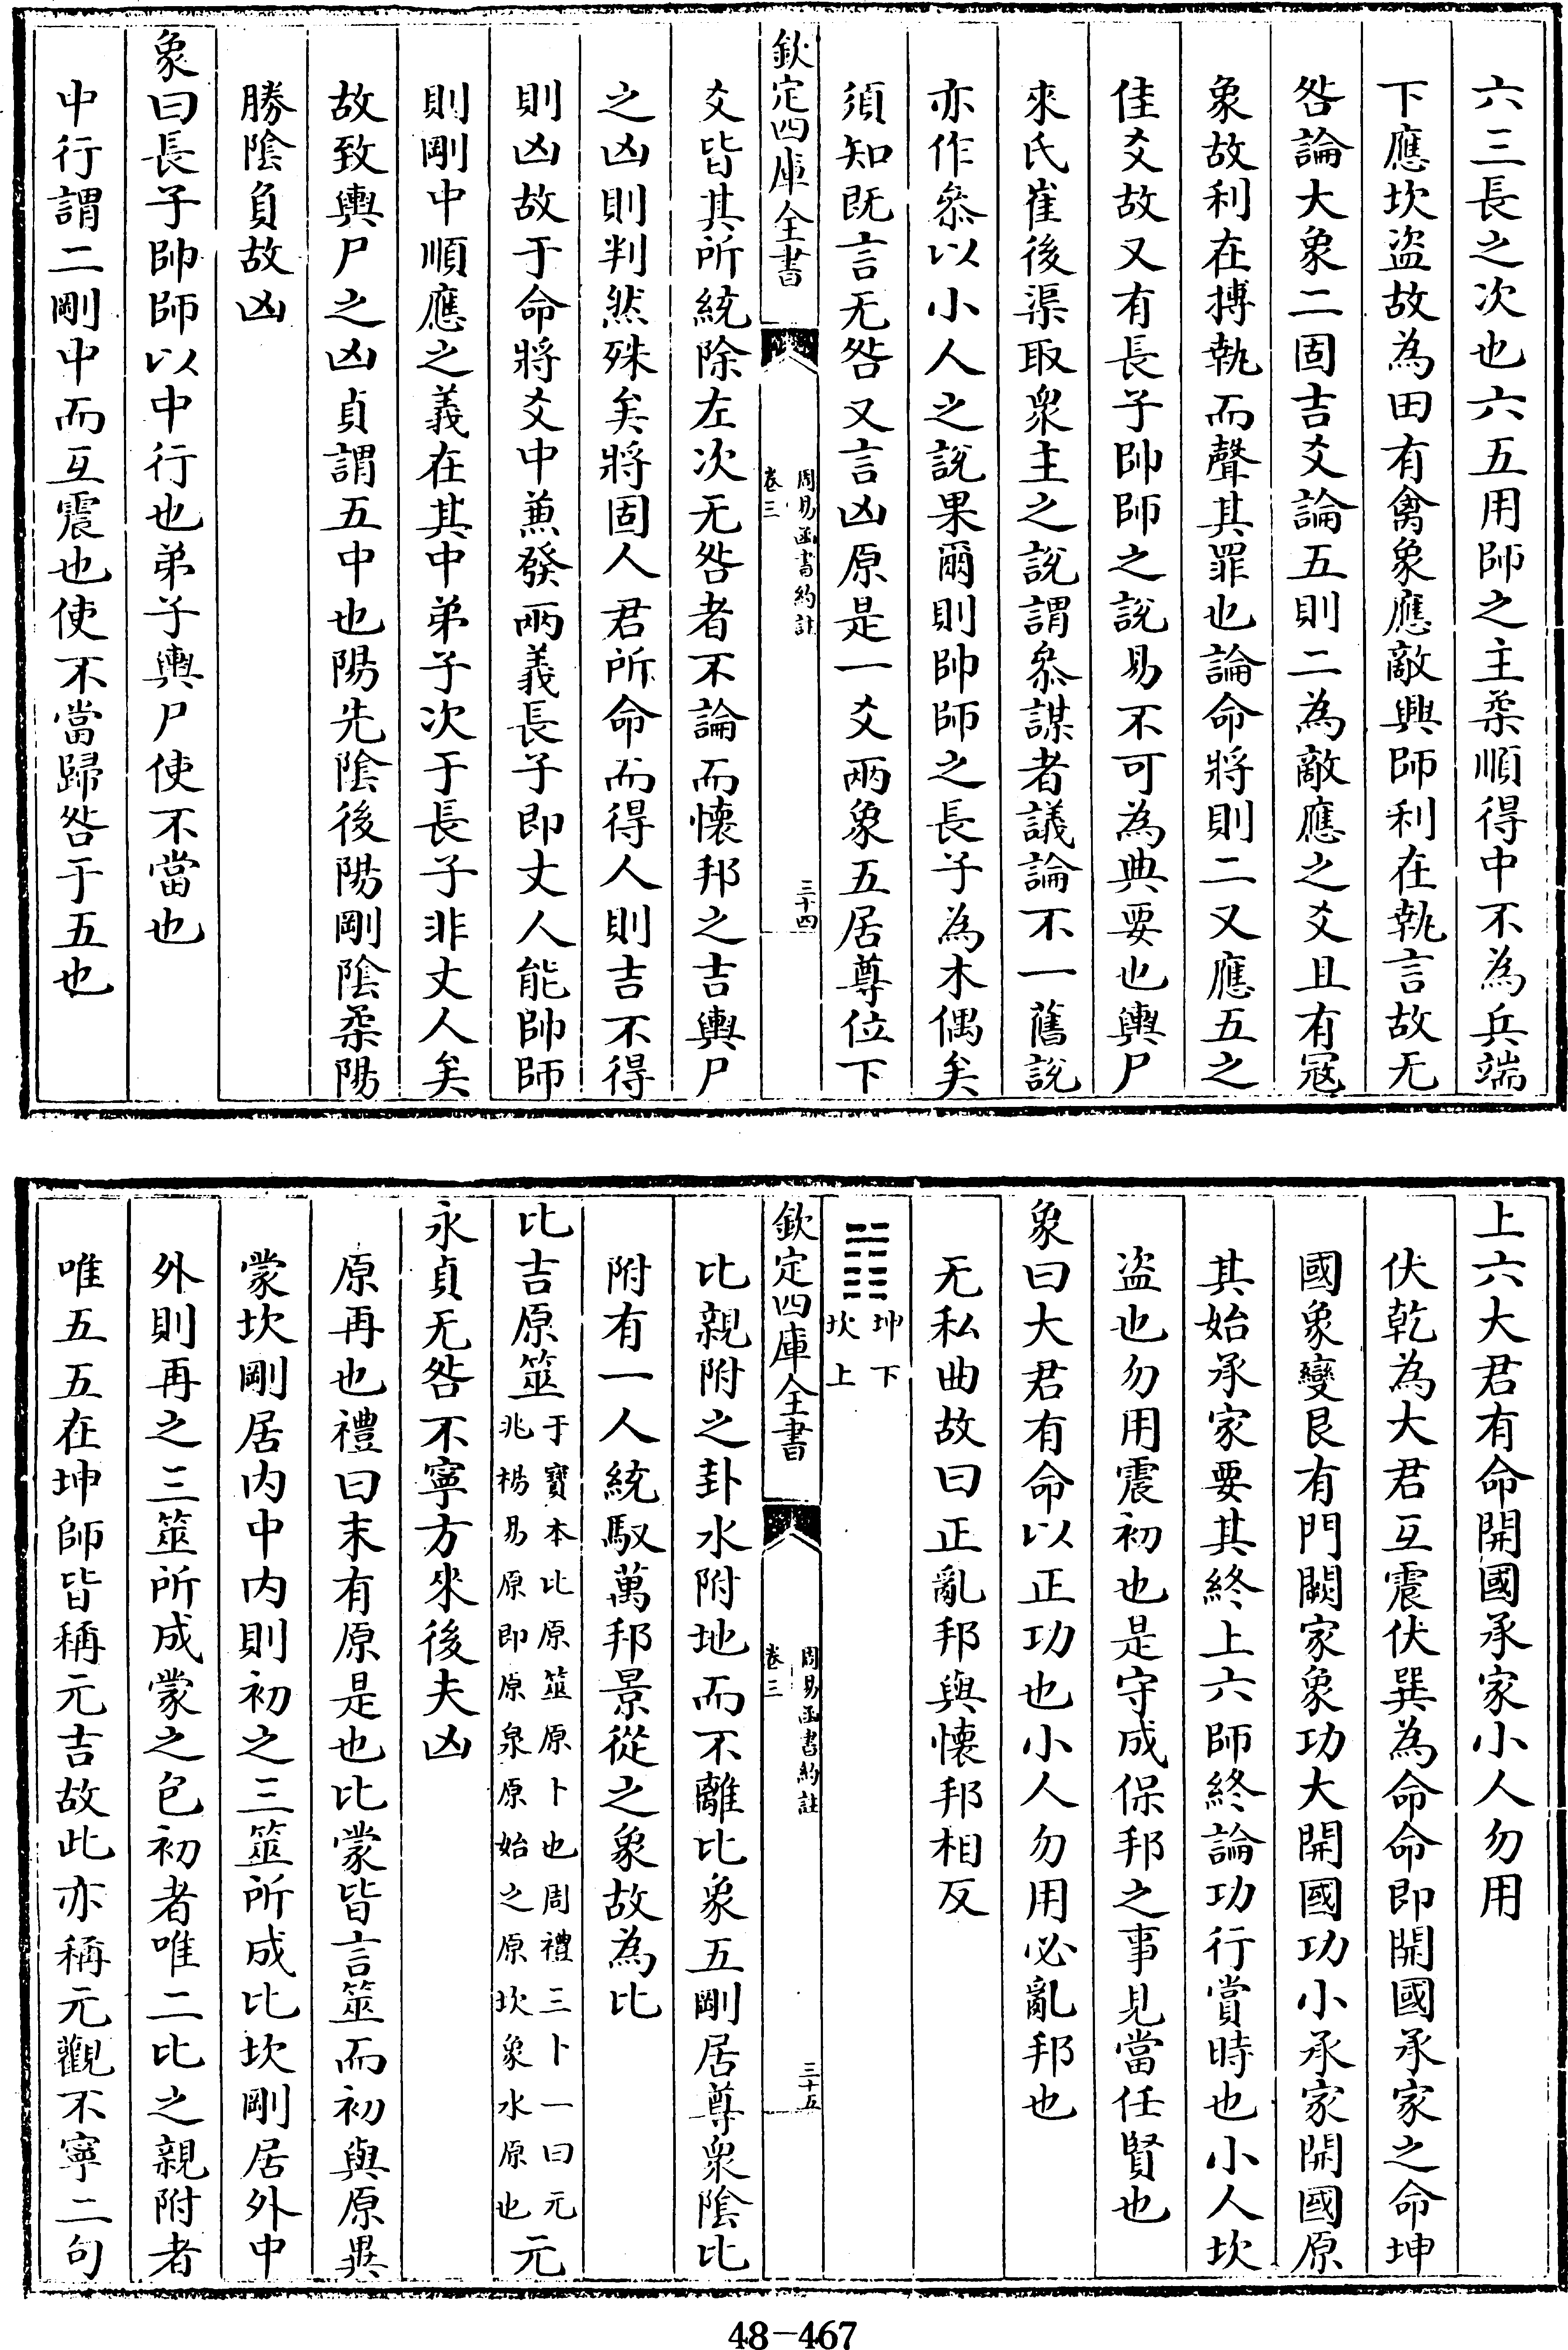 六三長之次也六五用師之主柔順得中不為兵端
下應坎盜故為田有禽象應敵興師利在執言故无
咎論大象二固吉爻論五則二為敵應之爻且有冦
象故利在搏執而聲其罪也論命將則二又應五之
佳爻故又有長子帥師之說易不可為典要也輿尸
來氏崔後渠取衆主之說謂叅謀者議論不一舊說
亦作叅以小人之說果爾則帥師之長子為木偶矣
須知既言无咎又言凶原是一爻兩象五居尊位下
欽定四庫全書
周易函書約註
卷三
三十四
爻皆其所統除左次无咎者不論而懷邦之吉輿尸
之凶則判然殊矣將固人君所命而得人則吉不得
則凶故于命將爻中兼發兩義長子即丈人能帥師
則剛中順應之義在其中弟子次于長子非丈人矣
故致輿尸之凶貞謂五中也陽先陰後陽剛陰柔陽
勝陰負故凶
象曰長子帥師以中行也弟子輿尸使不當也
中行謂二剛中而互震也使不當歸咎于五也
上六大君有命開國承家小人勿用
伏乾為大君互震伏巽為命命即開國承家之命坤
國象變艮有門闕家象功大開國功小承家開國原
其始承家要其終上六師終論功行賞時也小人坎
盜也勿用震初也是守成保邦之事見當任賢也
象曰大君有命以正功也小人勿用必亂邦也
无私曲故曰正亂邦與懷邦相反
坤下
坎上
欽定四庫全書
周易函書約註
卷三
三十五
比親附之卦水附地而不離比象五剛居尊衆陰比
附有一人統馭萬邦景從之象故為比
比吉原筮于寶本比原筮原卜也周禮三卜一曰元兆楊易原即原泉原始之原坎象水原也元
永貞无咎不寧方來後夫凶
原再也禮曰末有原是也比蒙皆言筮而初與原異
蒙坎剛居内中内則初之三筮所成比坎剛居外中
外則再之三筮所成蒙之包初者唯二比之親附者
唯五五在坤師皆稱元吉故此亦稱元觀不寧二句
48-467